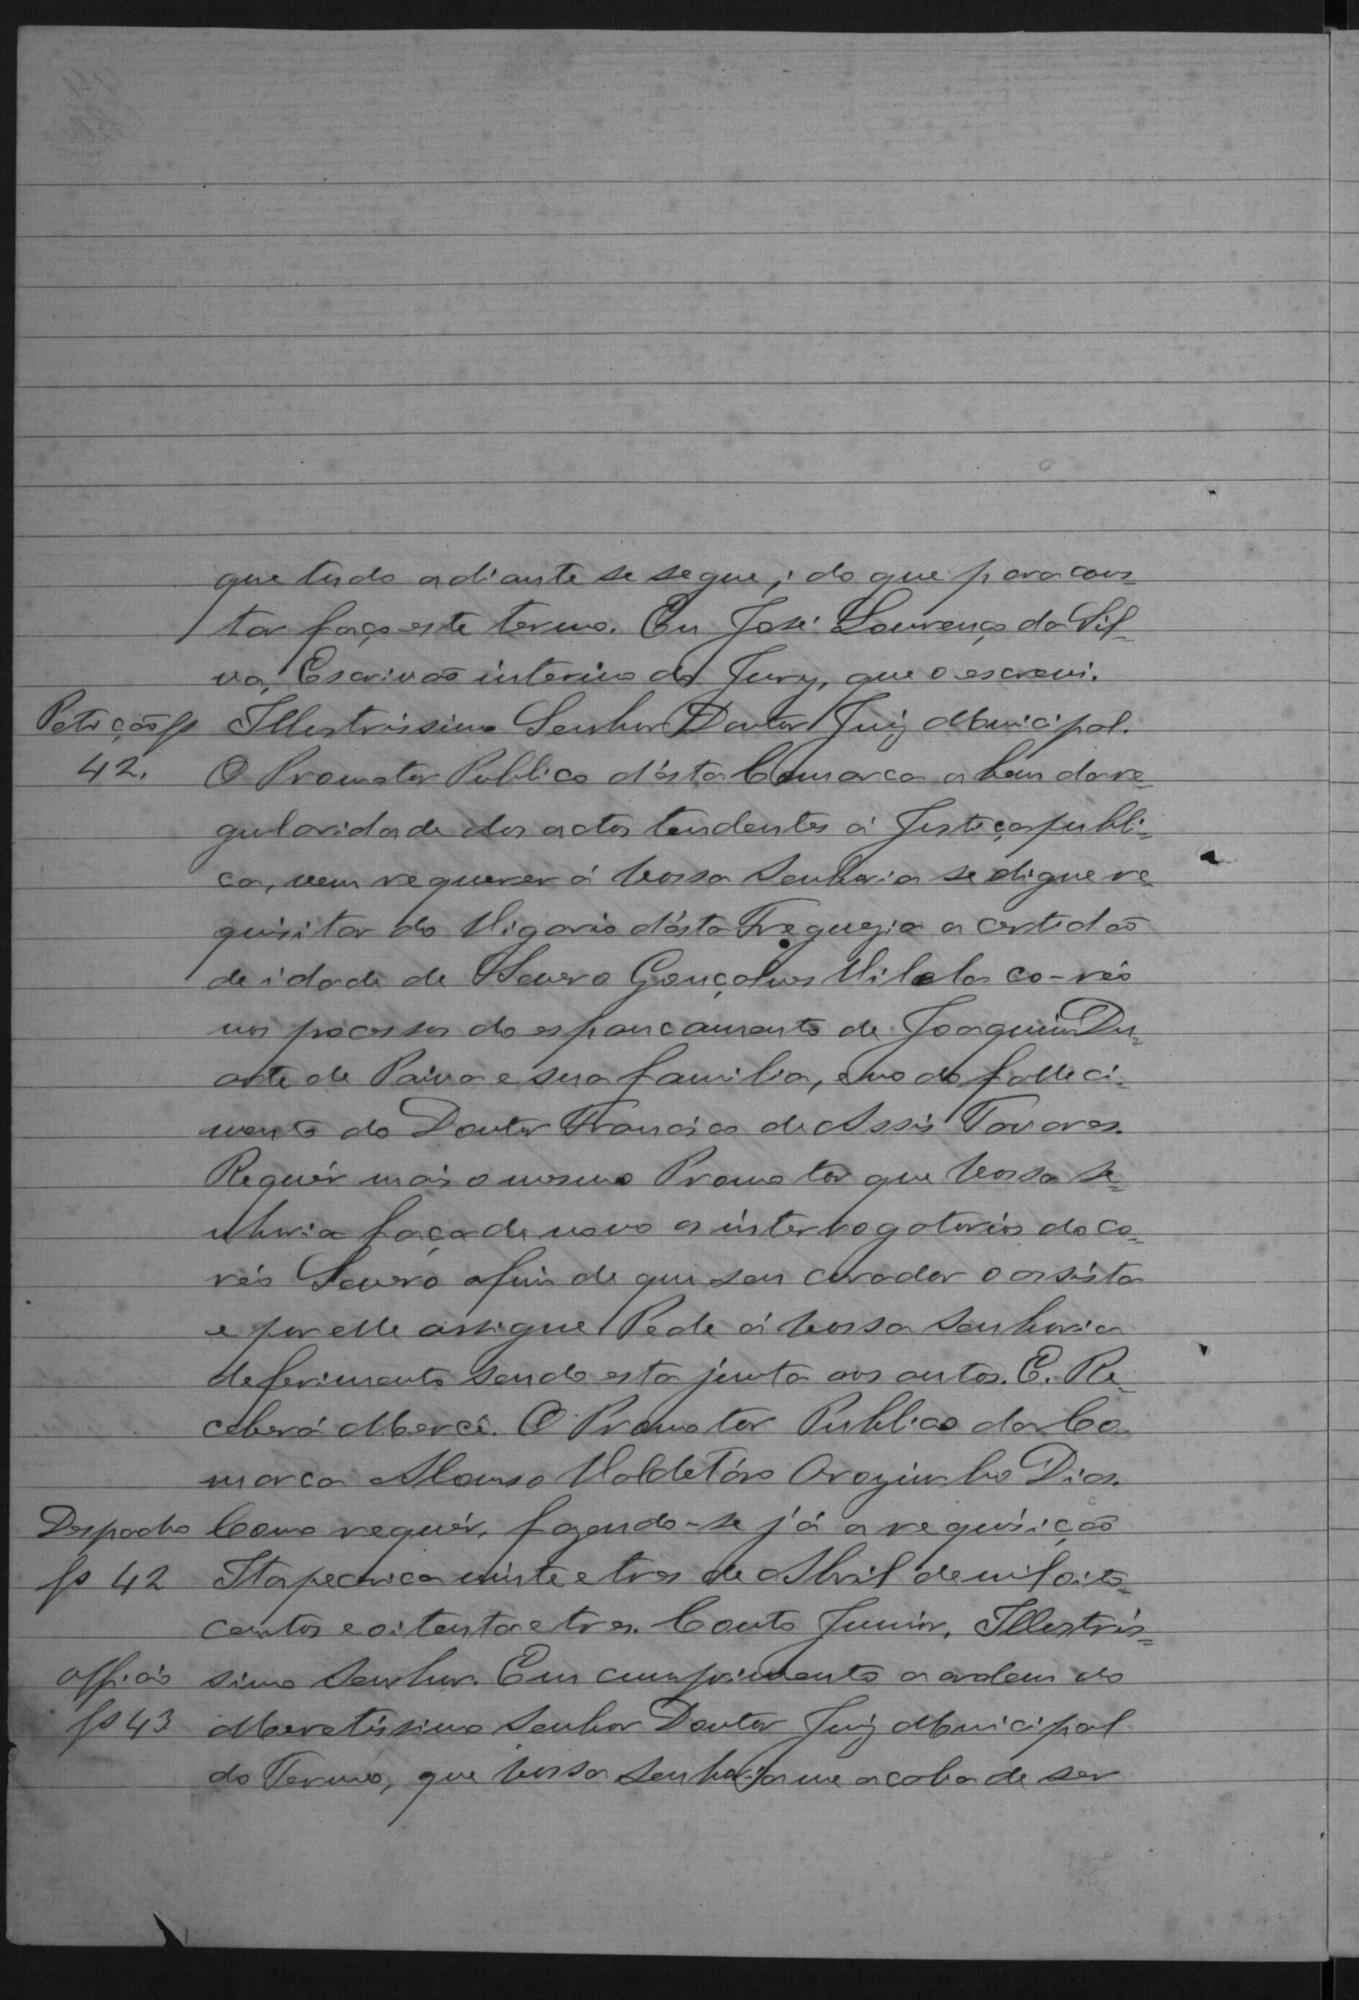 que tudo adiante se segue; do que para cons-
tar faço este termo. Eu José Lourenço da Sil-
va, Escrivão interino do Jury, que o escrevi.
Petição fs Illustrissimo Senhor Doutor Juiz Municipal.
42. O Promotor Publico désta Comarca a bem da re-
gularidade dos actos tendentes á Justiça publi-
ca, vem requerer á Vossa Senhoria se digne re-
quisitar do Vigario désta Freguezia a certidão
de idade de Severo Gonçalves Vilela co-réo
nos processos do espancamento de Joaquim Du-
arte de Paiva e sua familia, e no do falleci-
mento do Doutor Francisco de Assis Tavares.
Requér mais o mesmo Promotor que Vossa Se-
nhoria faça de novo os interrogatorios do co-
réo Severo afim de que seu curador o assista
e por elle assigne. Pede á Vossa Senhoria
deferimento sendo esta junta aos autos. E. Re-
ceberá Mercê. O Promotor Publico da Co-
marca Alonso Valdetáro Orozimbo Dias.
Despacho Como requér, fazendo-se já a requisição
fs 42 Itapecerica vinte e tres de Abril de mil oito-
centos e oitenta e tres. Couto Junior. Illustris-
officio simo Senhor. Em cumprimento a ordem do
fs 43 Meretissimo Senhor Doutor Juiz Municipal
do Termo, que Vossa Senhoria me acaba de ser